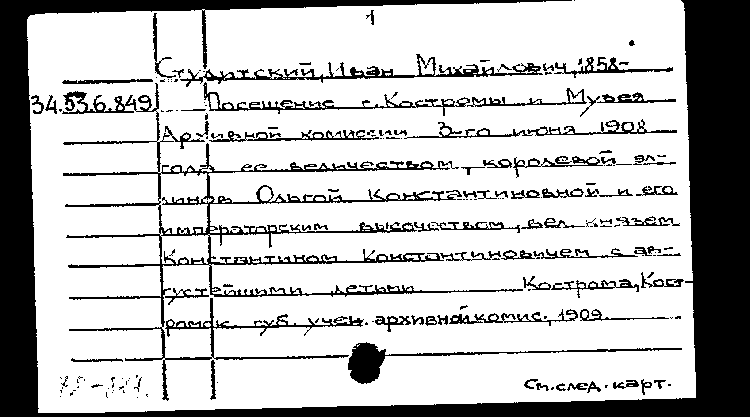 1
Студитский, Иван Михайлович, 1858-
34.53.6.849 Посещение г. Костромы и Музея
Архивной комиссии 3-го июня 1908
года ее величеством, королевой эл-
линов Ольгой Константиновной и его
императорским высочеством, вел. князем
Константином Константиновичем с ав-
густейшими детьми. Кострома, Кост-
ромск. губ. учен. архивной комис., 1909.
См. след. карт.